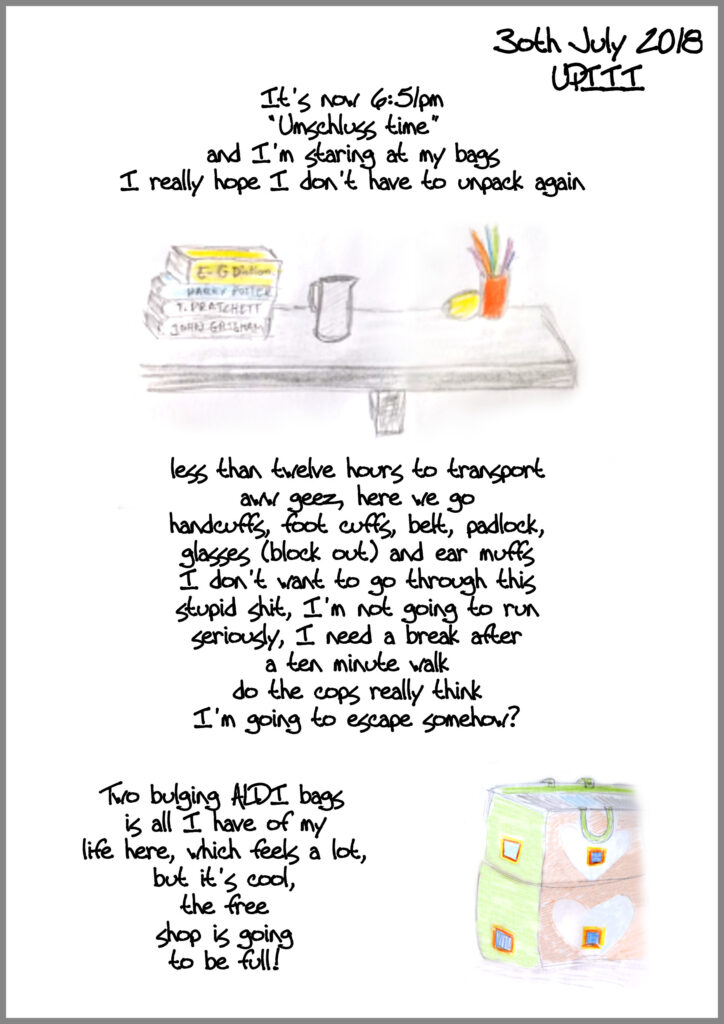 30th July 2018
UPIII
It's now 6:51pm
"Umschluss time"
and I'm staring at my bags
I really hope I don't have to unpack again
E-G Diction.
HARRY POTTER
T. PRATCHETT
JOHN GRISHAM
less than twelve hours to transport
aww geez, here we go
handcuffs, foot cuffs, belt, padlock,
glasses (block out) and ear muffs
I don't want to go through this
stupid shit, I'm not going to run
seriously, I need a break after
a ten minute walk
do the cops really think
I'm going to escape somehow?
Two bulging ALDI bags
is all I have of my
life here, which feels a lot,
but it's cool,
the free
shop is going
to be full!